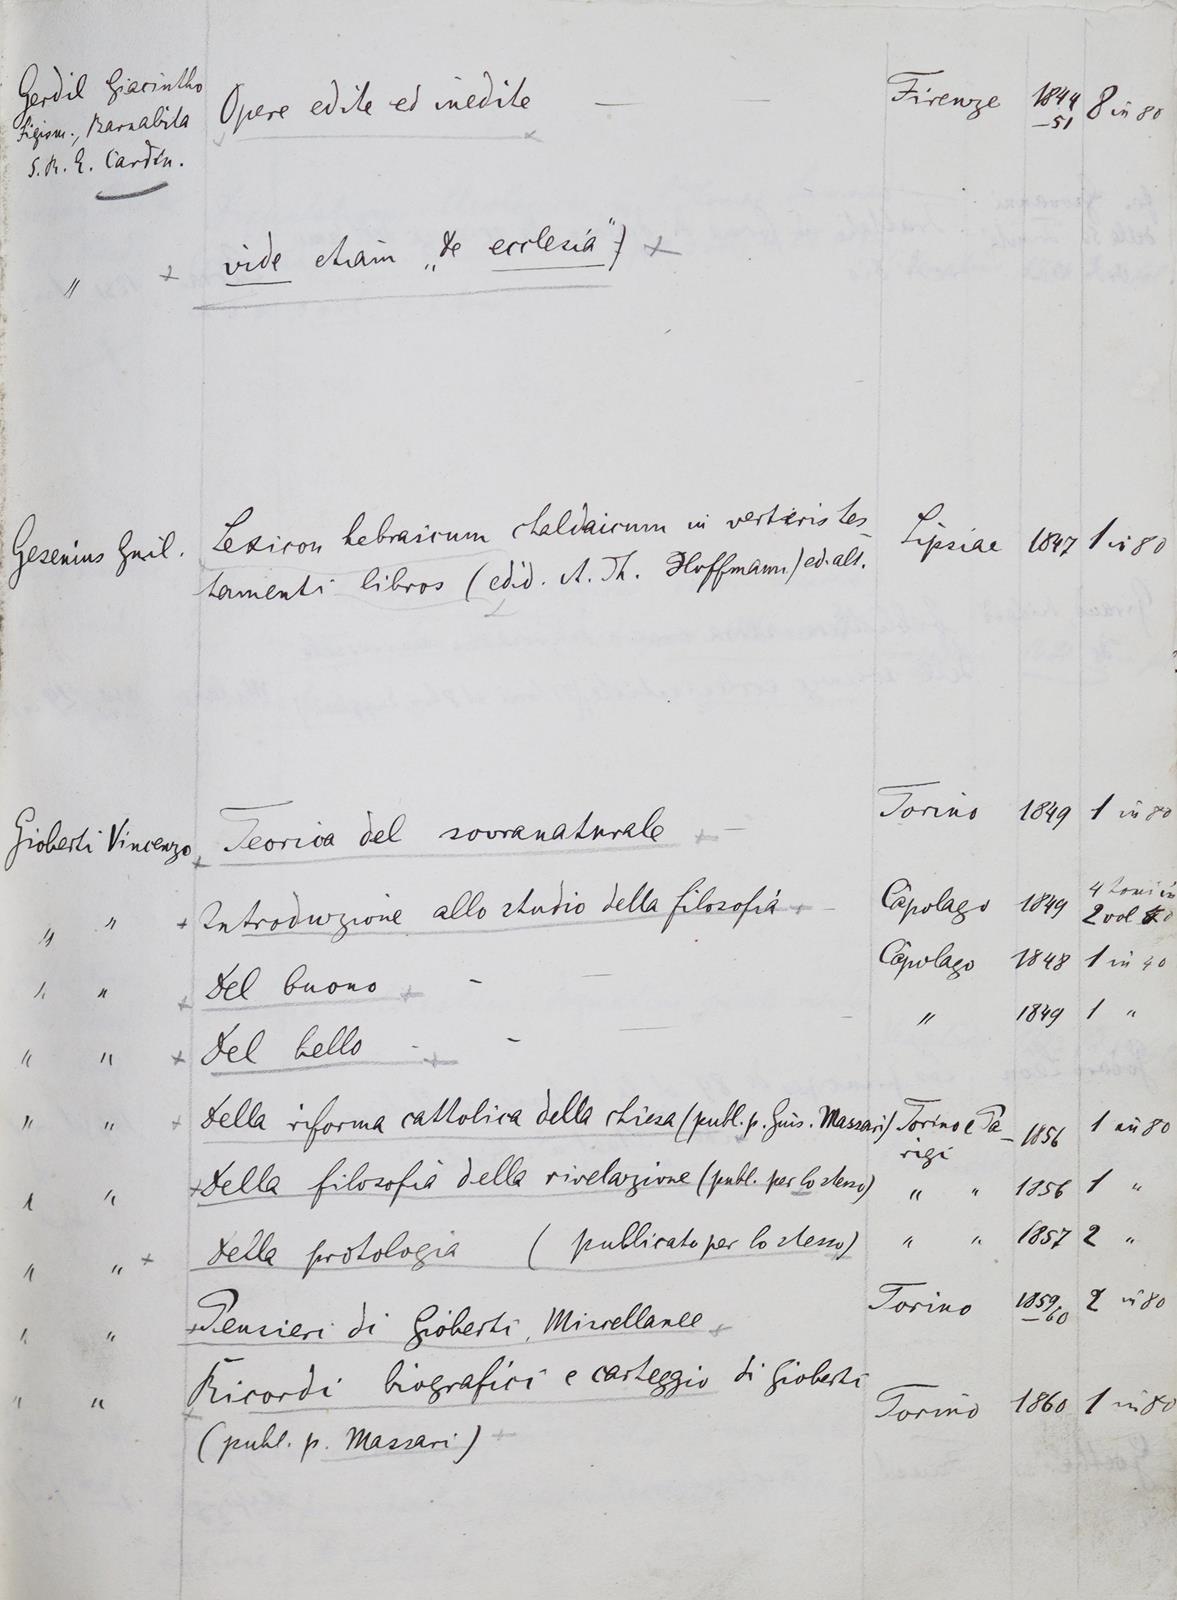 Gerdil Giacintho Opere edite ed inedite — — Firenze 1844 8 in 80
Sigism., Barnabita —51
S.R.E. Cardin.
" + vide etiam „de ecclesia") +
Gesenius Guil. Lexicon hebraicum chaldaicum in verteris tes Lipsiae 1847 1 in 80
tamenti libros (edid. A. Th. Hoffmann) ed. alt.
Gioberti Vincenzo + Teorica del sovranaturale + — Torino 1849 1 in 80
" " + Introduzione allo studio della filosofia + — Capolago 1849 4 tomi in
2 vol 80
" " + Del buono + - — Capolago 1848 1 in 40
" " + Del bello - + - — " 1849 1 "
" " + Della riforma cattolica della chiesa (publ. p. Gius. Massari) Torino e Pa- 1856 1 in 80
rigi
" " + Della filosofia della rivelazione (publ. per lo stesso) " " 1856 1 "
" " + Della protologia (publicato per lo stesso) " " 1857 2 "
" " + Pensieri di Gioberti, Miscellanee + Torino 1859/60 2 in 80
" " + Ricordi biografici e carteggio di Gioberti Torino 1860 1 in 80
(publ. p. Massari) +